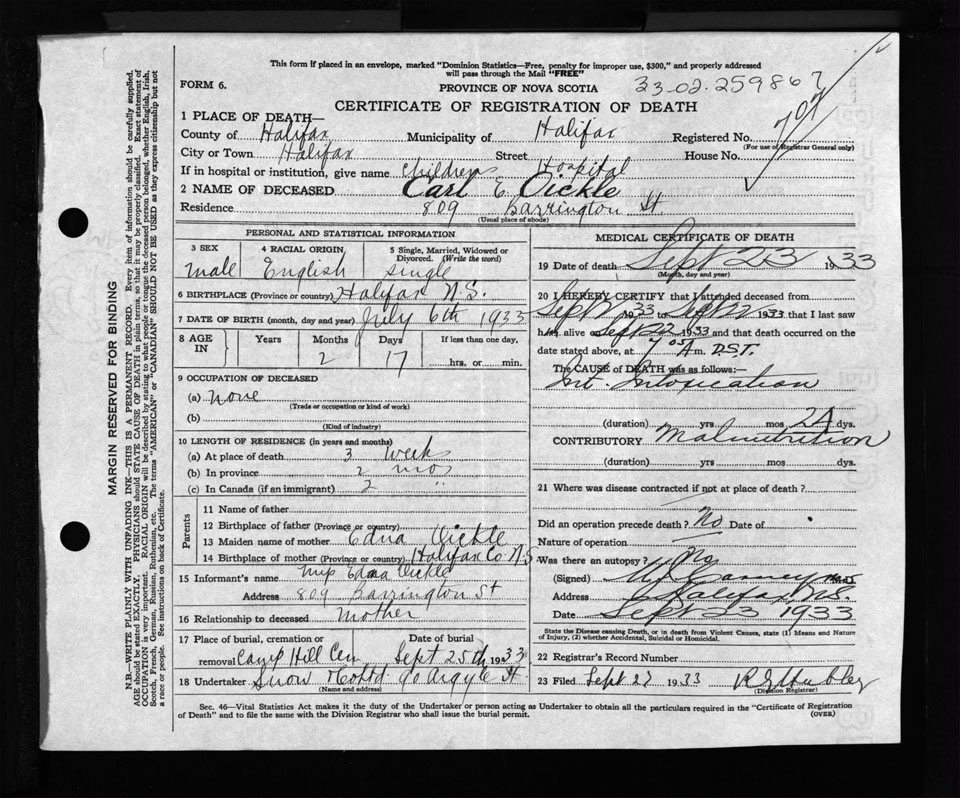 This form if placed in an envelope, marked "Dominion Statistics—Free, penalty for improper use, $300," and properly addressed
will pass through the Mail "FREE"
FORM 6.
PROVINCE OF NOVA SCOTIA
23.02.259867
CERTIFICATE OF REGISTRATION OF DEATH
1 PLACE OF DEATH—
County of Halifax Municipality of Halifax Registered No. 707
(For use of Registrar General only)
City or Town Halifax Street House No.
If in hospital or institution, give name Childrens Hospital
2 NAME OF DECEASED Carl E Oickle
Residence 809 Barrington St.
(Usual place of abode)
PERSONAL AND STATISTICAL INFORMATION
3 SEX 4 RACIAL ORIGIN 5 Single, Married, Widowed or Divorced. (Write the word)
male English single
6 BIRTHPLACE (Province or country) Halifax N.S.
7 DATE OF BIRTH (month, day and year) July 6th 1933
8 AGE IN Years Months Days If less than one day,
2 17 hrs. or min.
9 OCCUPATION OF DECEASED
(a) none
(Trade or occupation or kind of work)
(b)
(Kind of industry)
10 LENGTH OF RESIDENCE (in years and months)
(a) At place of death 3 weeks
(b) In province 2 mos
(c) In Canada (if an immigrant) 2 "
Parents
11 Name of father
12 Birthplace of father (Province or country)
13 Maiden name of mother Edna Oickle
14 Birthplace of mother (Province or country) Halifax Co N.S.
15 Informant's name Edna Oickle
Address 809 Barrington St
16 Relationship to deceased Mother
17 Place of burial, cremation or Date of burial
removal Camp Hill Cem Sept 25th 1933
18 Undertaker Snow 90 Argyle St
(Name and address)
MEDICAL CERTIFICATE OF DEATH
19 Date of death Sept 23 1933
(Month, day and year)
20 I HEREBY CERTIFY that I attended deceased from
Sept 1933 to Sept 1933 that I last saw
him alive Sept 22 1933 and that death occurred on the
date stated above, at 7.05 A m. D.S.T.
The CAUSE of DEATH was as follows:—
Int. Intoxication
(duration) yrs mos 21 dys.
CONTRIBUTORY Malnutrition
(duration) yrs mos dys.
21 Where was disease contracted if not at place of death?
Did an operation precede death? No Date of
Nature of operation
Was there an autopsy? No
(Signed)
Address Halifax N.S.
Date Sept 23 1933
State the Disease causing Death, or in death from Violent Causes, state (1) Means and Nature
of Injury, (2) whether Accidental, Suicidal or Homicidal.
22 Registrar's Record Number
23 Filed Sept 27 1933
(Division Registrar)
Sec. 46—Vital Statistics Act makes it the duty of the Undertaker or person acting as Undertaker to obtain all the particulars required in the "Certificate of Registration
of Death" and to file the same with the Division Registrar who shall issue the burial permit.
(OVER)
MARGIN RESERVED FOR BINDING
N.B.—WRITE PLAINLY WITH UNFADING INK—THIS IS A PERMANENT RECORD. Every item of information should be carefully supplied.
AGE should be stated EXACTLY. PHYSICIANS should STATE CAUSE OF DEATH in plain terms, so that it may be properly classified. Exact statement of
OCCUPATION is very important. RACIAL ORIGIN will be described by stating to what people or tongue the deceased person belonged, whether English, Irish,
Scotch, French, German, Russian, Ruthenian, etc. The terms "AMERICAN" or "CANADIAN" SHOULD NOT BE USED as they express citizenship but not
a race or people. See instructions on back of Certificate.